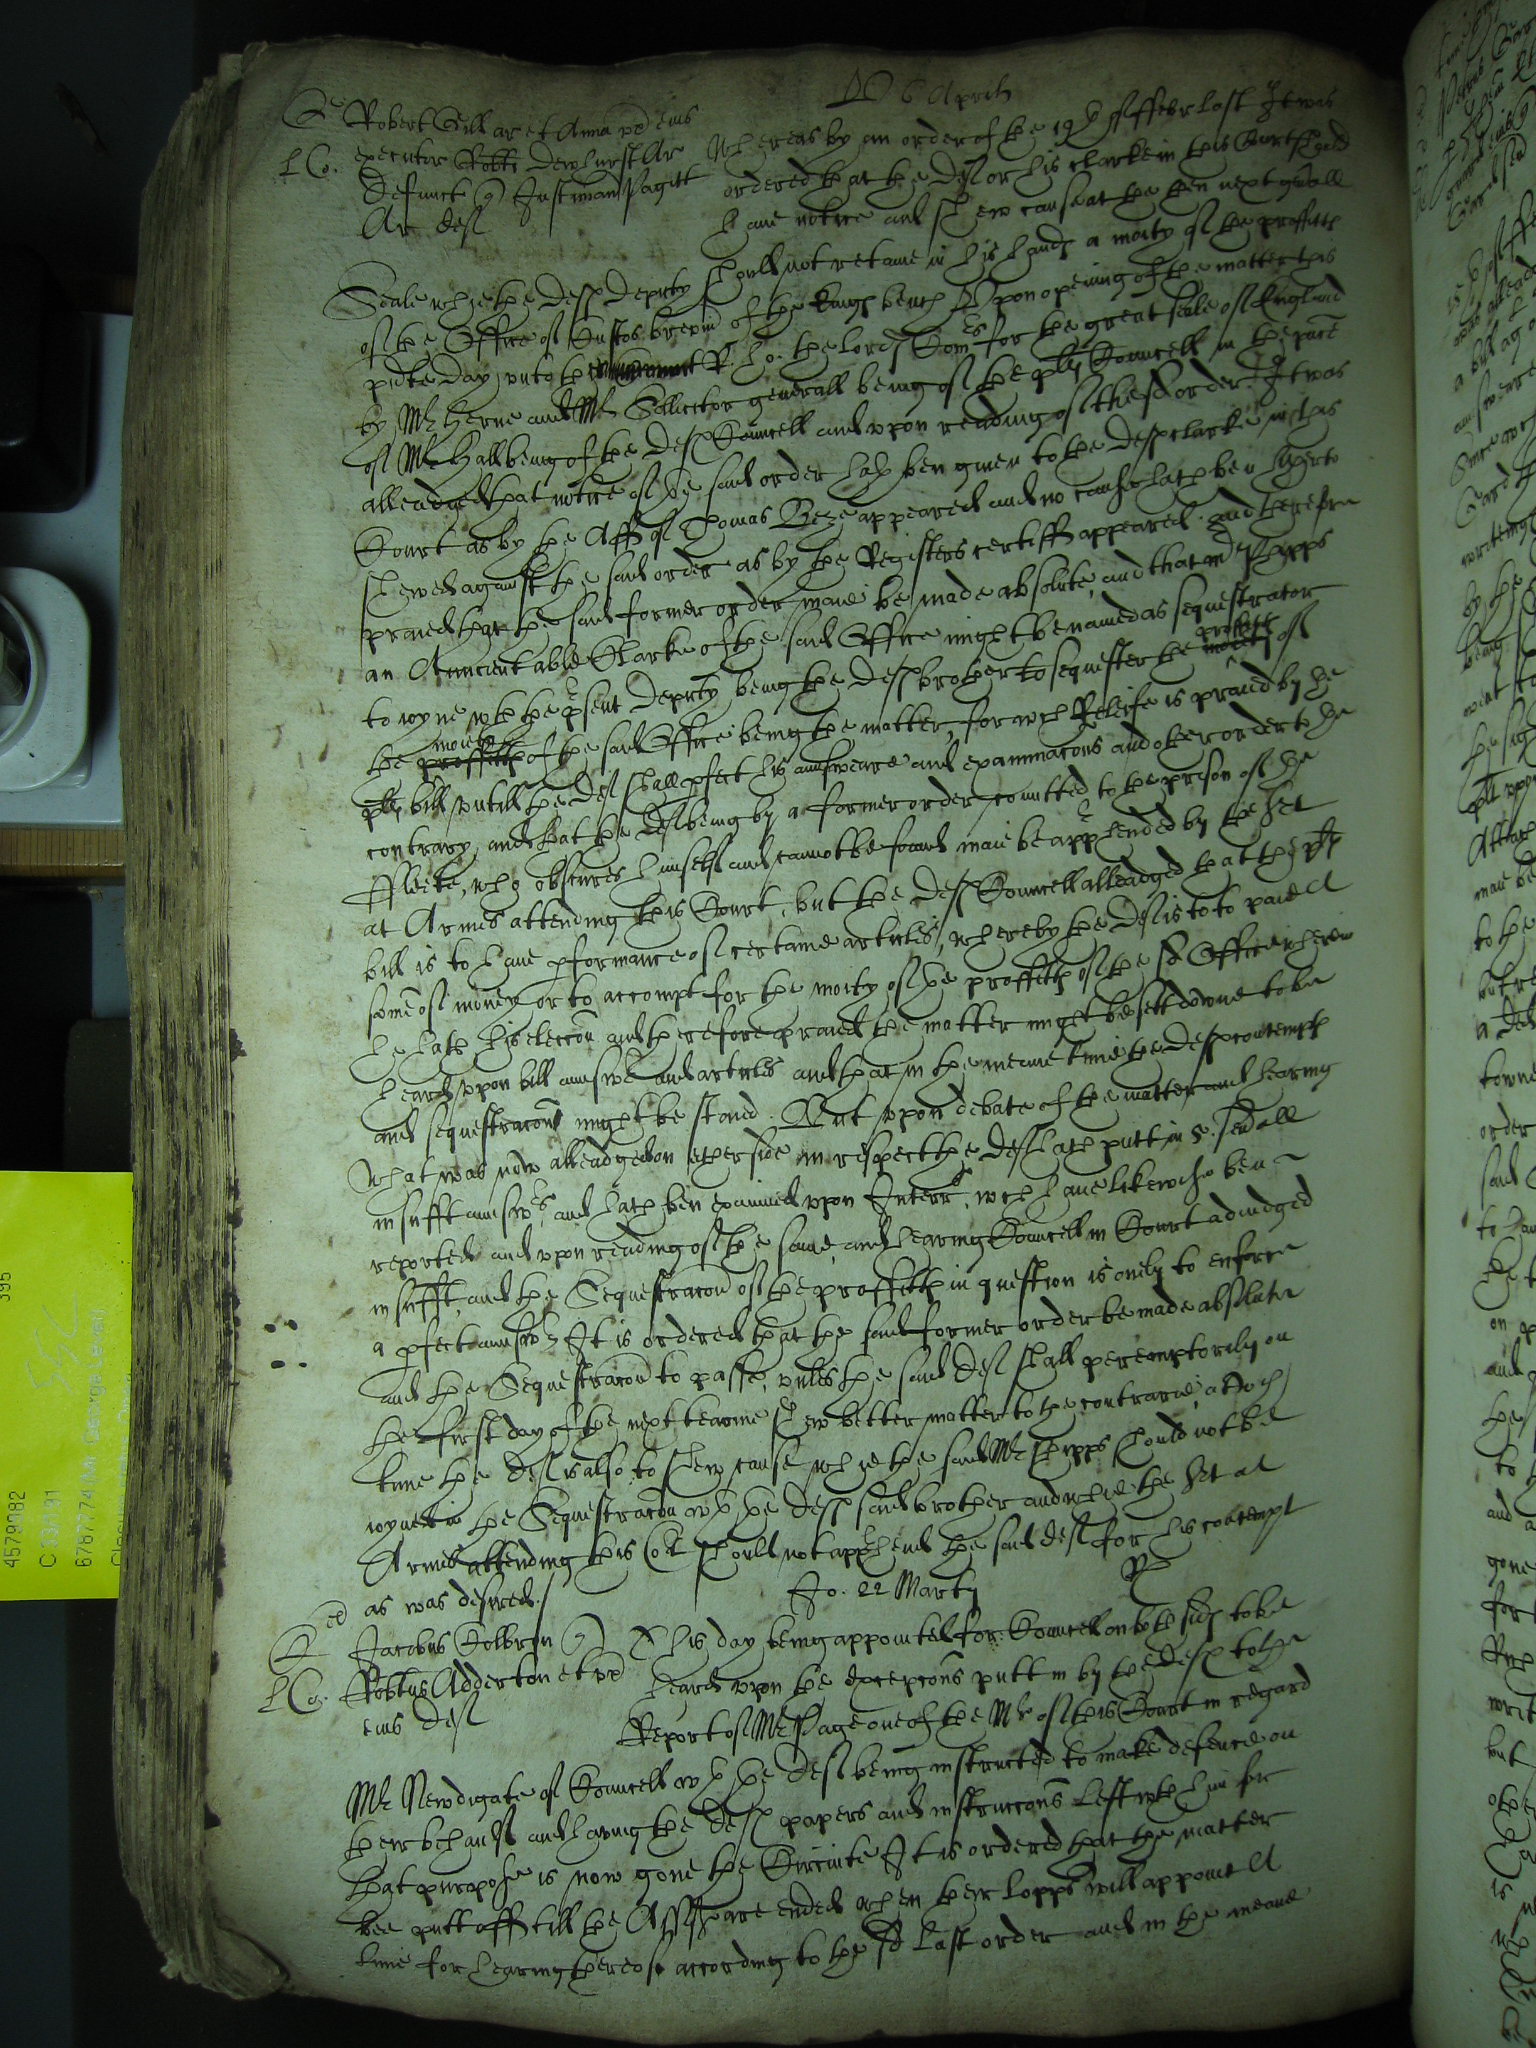 6 Aprilis
Robert Gill ar et Anna ux eius
executor Robti Dewhurst Ar
defunct Justinian Pagitt
Ar def
LCo.
Whereas by an order of the 19th of ffebr last It was
ordered that the def or his clarke in this Court should
have notice and shew cause at the then next genall
Seale why the defts deputy should not retaine in his hands a moity of the proffitts
of the Office of Custos brevium of the kings bench Upon opening of the matter this
pnte day unto the R. ho: the lords Comrs for the great seale of England
by Mr Herne and Mr Sollicitor generall being of the plts Councell in the pnce
of Mr Hall being of the defts Councell and upon reading of the sd order It was
alleadged that notice of the said order hath ben given to the defts clarke in this
Court as by the Afft of Thomas appeared and no cause hath ben hitherto
shewed against the said order as by the Registers certifft appeared. And therefore
praied that the said former order maie be made absolute, and that mr Phipps
an Auncient able Clarke of the said Office might be named as sequestrator
to ioyne wth the psent deputy being the defts brother to sequester the proffitts of
the moity of the said Office being the matter, for wch Releife is praied by the
plts bill untill the def shall pfect his answeare and examinacons and other order to the
contrary, and that the def being by a former order comitted to the prison of the
ffleete, who obscures himself and cannot be found maie be apprhended by the Sert
at Armes attending this Court, but the defts Councell alleadged that the plts
bill is to have pformance of certaine articles, whereby the def is to to paie a
some of money or to accompt for the moity of the proffitts of the sd Office wherein
he hath his eleccon and therefore praied the matter might be sett downe to be
heard upon bill answere and articles and that in the meane time the defts contempts
and sequestracon might be staied. But upon debate of the matter and hearing
what was now alleadged on either side in respect the def hath putt in 5. sevall
insufft answrs, and hath ben examined upon Interrs, wch have likewise ben
reported and upon reading of the same, and hearing Councell in Court adiudged
insufft, and the Sequestracon of the proffitts in question is onely to enforce
a pfect answer It is ordered that the said former order be made absolute
and the Sequestracon to passe, unles the said def shall peremptorily on
the first day of the next tearme shew better matter to the contrarie, at wch
time the def is also to shew cause why the said Mr Phipps should not be
ioyned in the Sequestracon wth the defts said brother and why the Sert at
Armes attending this Cort should not apprhend the said def for his contempt
as was desired./
Jo. 22 Martij
Jacobus Colbron
Robtus Adderton et ux
eius def
LCo.
This day being appointed for Councell on both sides to be
heard upon the excepcons putt in by the defts to the
Report of Mr Page one of the Mrs of this Court in regard
Mr Newdigate of Councell wth the def being instructed to make defence on
their behaulf and having the defts papers and instruccons left wth him for
that purpose is now gone the Circuite It is ordered that the matter
bee putt off till the Assises are ended when their lopps will appoint a
time for hearing thereof according to the sd last order and in the meane
4579082
C 33/191
6787774(Mr George Leven)